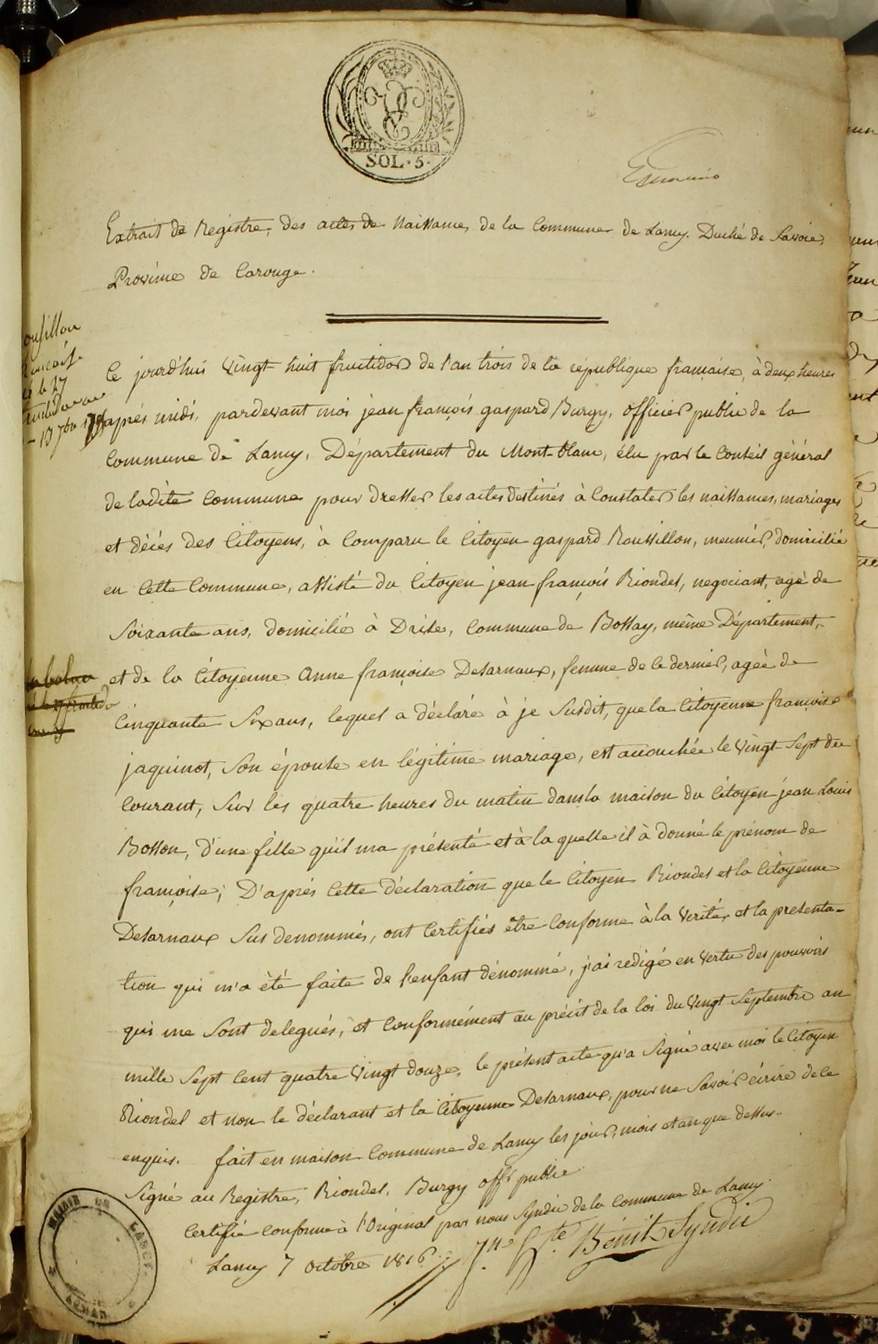 SOL. 5.
Extrait de Registre, des actes de Naissance, de la Commune de Lancy. Duché de Savoie,
Province de Carouge.
Ce jourd'hui Vingt huit fructidor de l'an trois de la république française, à deux heures
après midi, pardevant moi jean françois gaspard Burgy, officier public de la
Commune de Lancy, Département du Mont-blanc, élu par le Conseil général
de ladite Commune pour dresser les actes destinés à Constater les naissances, mariages
et décès des Citoyens, à Comparu le Citoyen gaspard Roussillon, meunier, domicilié
en Cette Commune, assisté du Citoyen jean françois Riondel, negociant, agé de
Soixante ans, domicilié à Drise, Commune de Bossay, même Département,
et de la Citoyenne Anne françoise Desarnaux, femme de ce dernier, agée de
Cinquante Six ans, lequel a déclaré à je Susdit, que la Citoyenne françoise
jaquinot, Son épouse en légitime mariage, est accouchée le Vingt Sept du
Courant, Sur les quatre heures du matin dans la maison du Citoyen jean Louis
Bosson, d'une fille qu'il m'a présenté et à la quelle il à donné le prénom de
françoise; D'après Cette Déclaration que le Citoyen Riondel et la Citoyenne
Desarnaux Sus denommés, ont Certifiés être Conforme à la Verité, et la présenta-
tion qui m'a été faite de l'enfant dénommé, j'ai redigé en Vertu des pouvoirs
qui me Sont delegués, et Conformément au précit de la loi du Vingt Septembre an
mille Sept Cent quatre Vingt douze, le présent acte qu'a Signé avec moi le Citoyen
Riondel et non le déclarant et la Citoyenne Desarnaux, pour ne Savoir écrire de ce
enquis. fait en maison Commune de Lancy les jour, mois et an que dessus.
Signé au Registre, Riondel. Burgy off.r public
Certifié Conforme à l'Original par nous Syndic de la Commune de Lancy.
Lancy 7 Octobre 1816. J.n B.te Bénit Syndic
MAIRIE DE LANCY